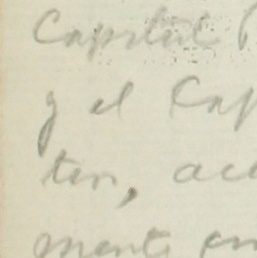 Capital
y el Cap
ter, acc
ment en